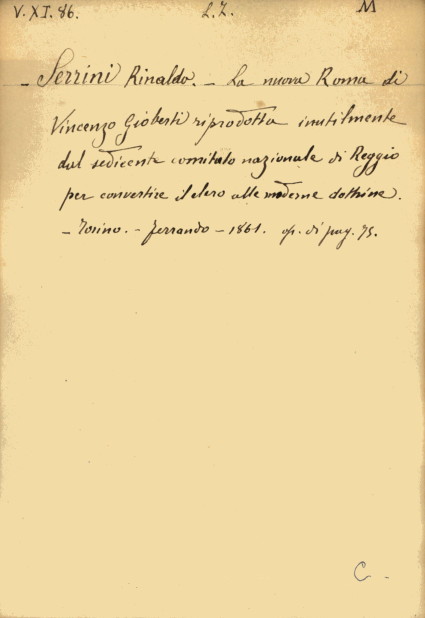 V. XI. 86. L. Z. M
- Serrini Rinaldo. - La nuova Roma di
Vincenzo Gioberti riprodotta inutilmente
dal sedicente comitato nazionale di Reggio
per convertire il clero alle moderne dottrine.
- Torino. - Ferrando - 1861. op. di pag. 75.
C -